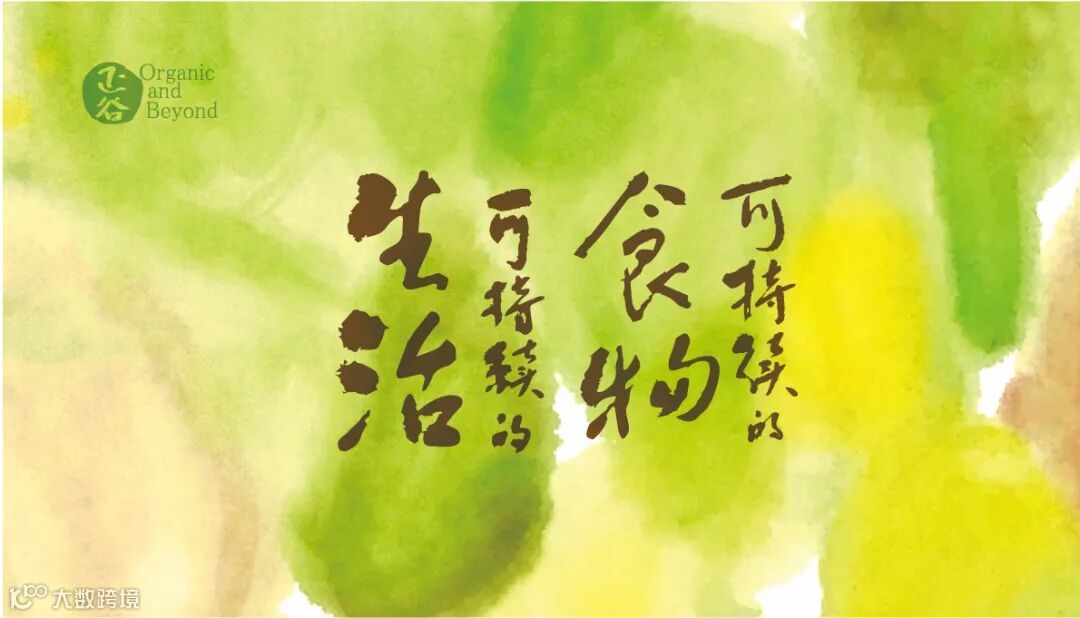 正谷
Organic
and
Beyond
可持续的
食物
可持续的
生活
大数跨境